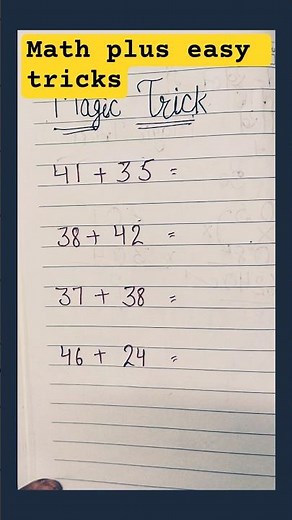 Math plus easy
tricks
Magic Trick
41 + 35 =
38 + 42 =
37 + 38 =
46 + 24 =